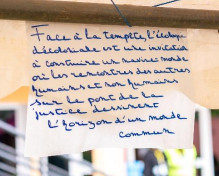 Face à la tempête, l'écologie
décoloniale est une invitation
à construire un navire monde
où les rencontres des autres
humains et non humains
sur le pont de la
justice dessinent
l'horizon d'un monde
commun